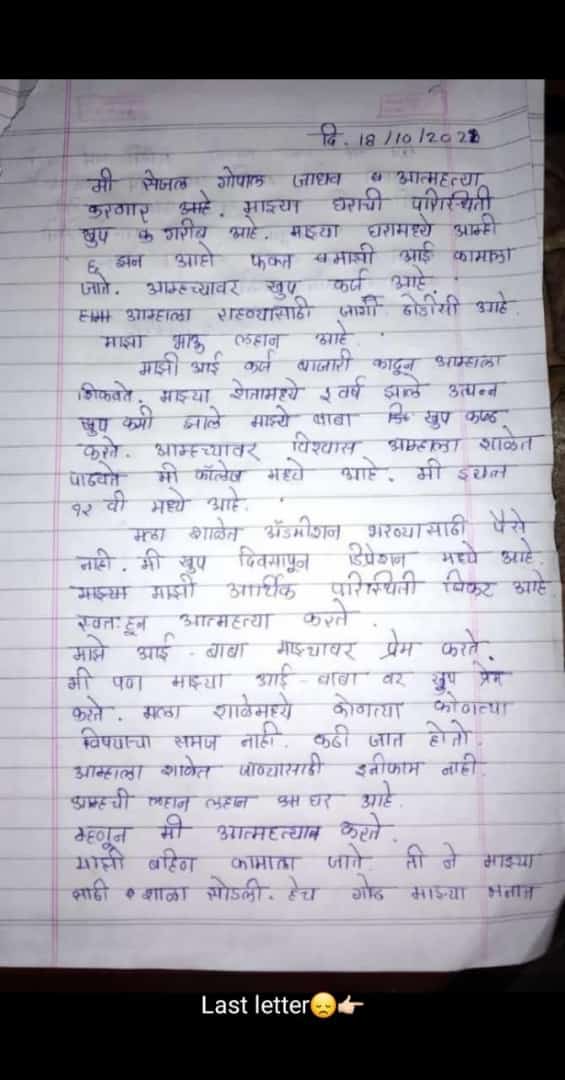 दि. 18/10/202
मी सेजल गोपाल जाधव आत्महत्या
करणार आहे. माझ्या घराची परिस्थिती
खुप गरीब आहे. माझ्या घरामध्ये आम्ही
६ झन आहो फक्त माझी आई कामाला
जाते. आम्हच्यावर खुप कर्ज आहे.
आम्हाला राहण्यासाठी जागी आहे.
माझा भाऊ लहान आहे.
माझी आई कर्ज बाजारी काढून आम्हाला
शिकवते. माझ्या शेतामध्ये वर्ष झाले उत्पन्न
खुप कमी झाले माझे बाबा खुप कष्ट
करते. आम्हच्यावर विश्वास अम्हाला शाळेत
पाठवते मी कॉलेज मध्ये आहे. मी इयत्त
१२ वी मध्ये आहे.
मला शाळेत अ‍ॅडमीशन भरण्यासाठी पैसे
नाही. मी खुप दिवसापून डिप्रेशन मध्ये आहे.
माझ्या माझी आर्थिक परिस्थिती बिकट आहे.
स्वतःहून आत्महत्या करते.
माझे आई - बाबा माझ्यावर प्रेम करते.
मी पण माझ्या आई - बाबा वर खुप प्रेम
करते. मला शाळेमध्ये कोणत्या कोणत्या
विषयाचा समज नाही. कठी जात होतो.
आम्हाला शाळेत जाण्यासाठी इनीफाम नाही.
अम्हची लहान लहान घर आहे.
म्हणून मी आत्महत्या करते.
माझी बहिण कामाला जाते. ती ने माझ्या
साठी शाळा सोडली. हेच गोष्ट माझ्या मनात
Last letter😞👉🏻